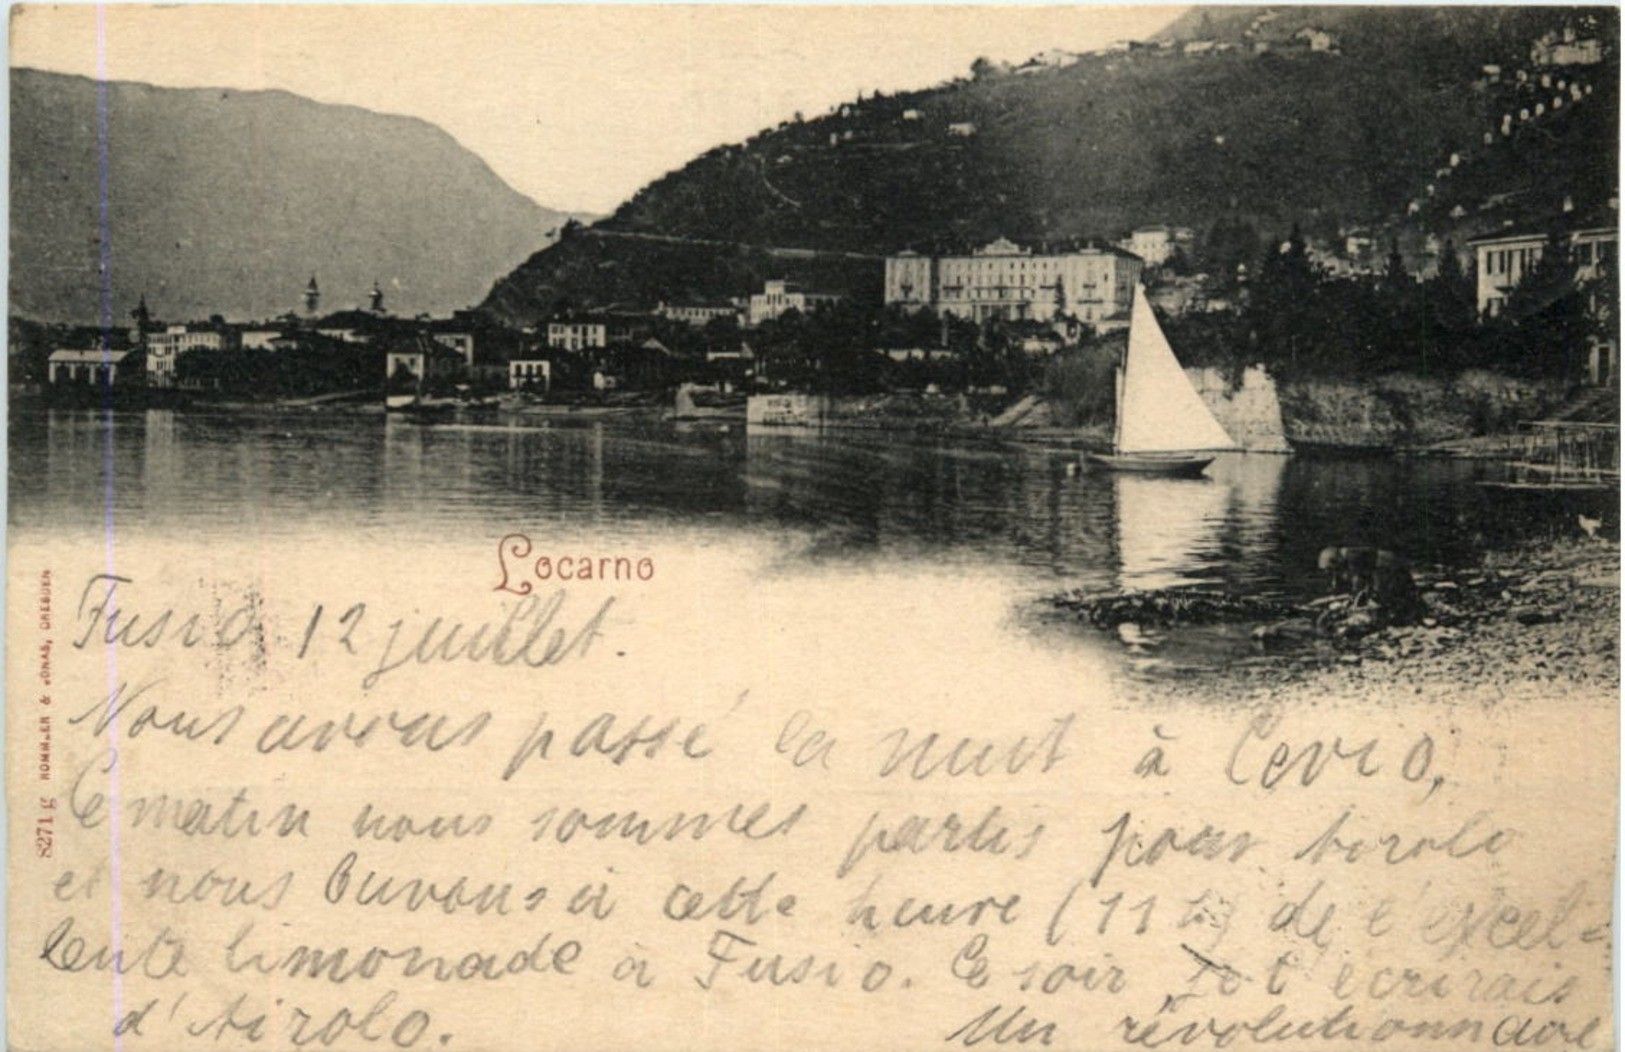 Locarno
8271 g ROMMLER & JONAS, DRESDEN
Fusio 12 juillet.
Nous avons passé la nuit à Cevio,
Ce matin nous sommes partis pour Airolo
et nous buvons à cette heure (11 h) de l'excel-
lente limonade à Fusio. Ce soir je t'écrirais
d'Airolo. Un révolutionnaire